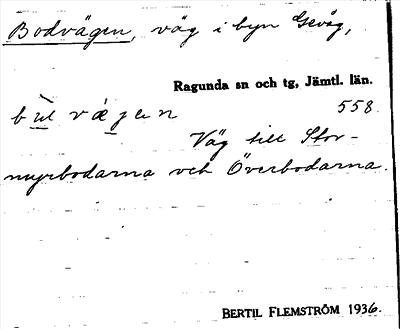 Bodvägen, väg i byn Gevåg,
Ragunda sn och tg, Jämtl. län.
558
Väg till Stor-
myrbodarna och Överbodarna.
BERTIL FLEMSTRÖM 1936.